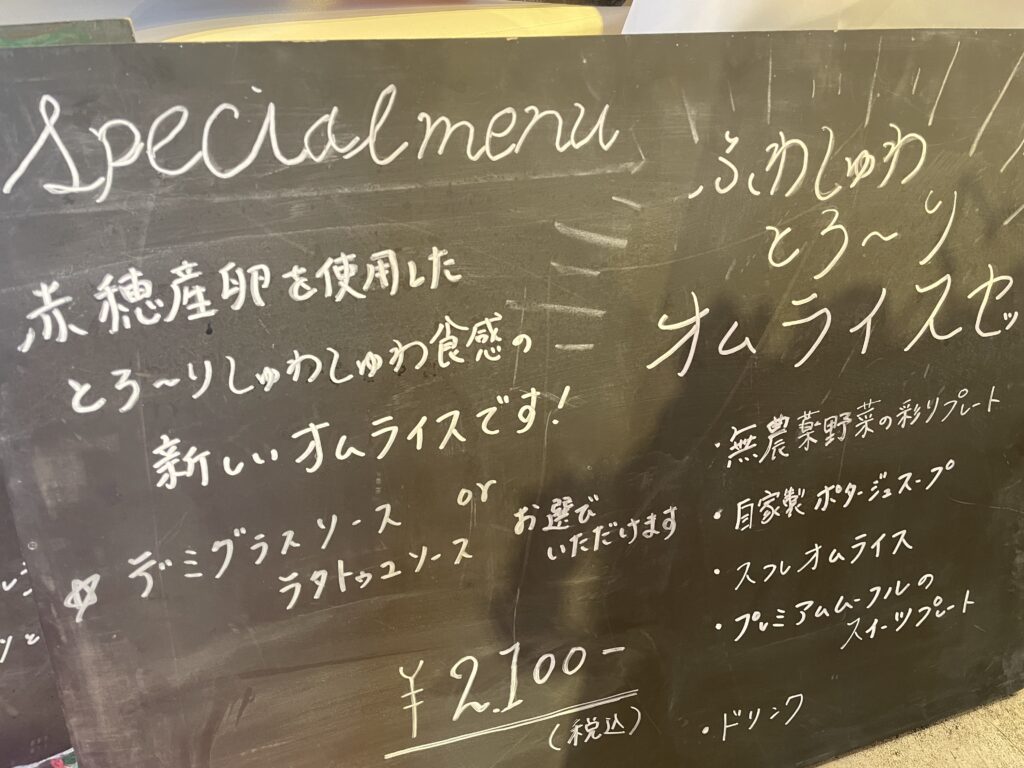 Special menu
赤穂産卵を使用した
とろ～りしゅわしゅわ食感の
新しいオムライスです!
☆ デミグラスソース or
ラタトゥユソース
お選び
いただけます
¥2.100-
(税込)
ふわしゅわ
とろ～り
オムライスセッ
・無農薬野菜の彩りプレート
・自家製ポタージュスープ
・スフレオムライス
・プレミアムムーフルの
スイーツプレート
・ドリンク